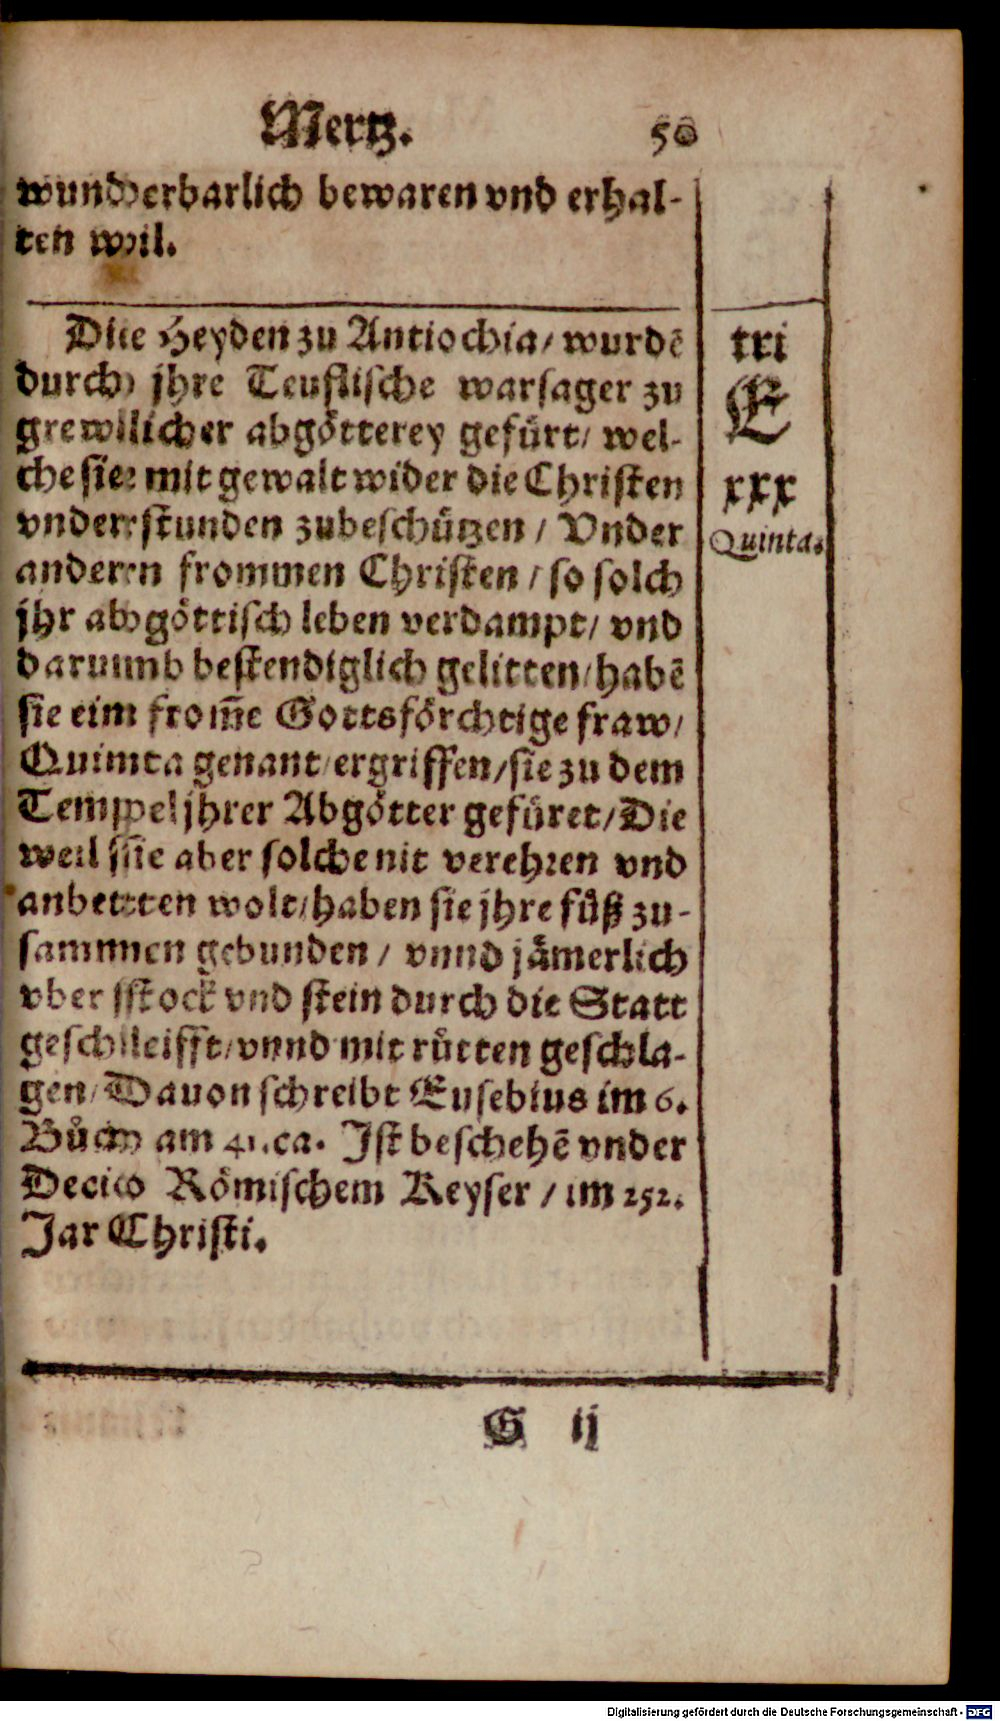 Mertz. 50
wunderbarlich bewaren vnd erhal-
ten wil.
Die Heyden zu Antiochia/ wurdē
durch jhre Teuflische warsager zu
grewlicher abgötterey gefürt/ wel-
che sie mit gewalt wider die Christen
vnderstunden zubeschützen / Vnder
anderen frommen Christen / so solch
jhr abgöttisch leben verdampt/ vnd
darumb bestendiglich gelitten/ habē
sie ein from̄e Gottsförchtige fraw/
Quinta genant/ ergriffen/ sie zu dem
Tempel jhrer Abgötter gefüret/ Die
weil sie aber solche nit verehren vnd
anbetten wolt/ haben sie jhre füß zu-
sammen gebunden / vnnd jämerlich
vber stock vnd stein durch die Statt
geschleifft/ vnnd mit růtten geschla-
gen/ Dauon schreibt Eusebius im 6.
Bůch am 41. ca. Ist beschehē vnder
Decio Römischem Keyser / im 252.
Jar Christi.
tri
E
xxx
Quinta.
G ij
Digitalisierung gefördert durch die Deutsche Forschungsgemeinschaft - DFG